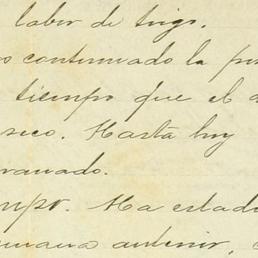 labor de trigo.
os continuado la
tiempo que el
seco. Hasta hoy
granado.
Ha estad
mana anterior,